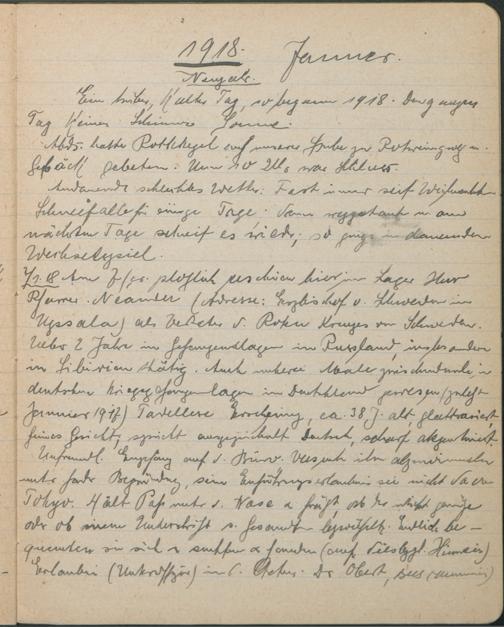 1918. Jänner.
Neujahr.
Ein trüber, kalter Tag, so begann 1918. Den ganzen
Tag keinen Schimmer Sonne.
Abds. hatte Rottkegel auf unserer Stube zu Rotweingrog u.
Gebäck gebeten. Um 10 Uhr war Schluss.
Andauernd schlechtes Wetter. Fast immer seit Weihnachten
Schneefälle für einige Tage. Dann
nächsten Tage es wieder, so ging in dauerndem
Wechselspiel.
7/1.18 Am 7/1. plötzlich erschien hier im Lager Herr
Pfarrer Neander (Adresse: Erzbischof v. Schweden in
Upsala) als Vertreter d. Roten Kreuzes von Schweden.
Ueber 2 Jahre in Gefangenenlagern in Russland, insbesondere
in Sibirien thätig. Auch mehrere Male zwischendurch in
deutschen Kriegsgefangenenlagern in Deutschland gewesen (zuletzt
Januar 1917) Tadellose Erscheinung, ca. 38 J. alt, glattrasiert
feines Gesicht, spricht ausgezeichnet Deutsch, scharf akzentuiert.
Unfreundl. Empfang auf d. Büro. Versucht ihn abzuwimmeln
unter der Begründung, seine Einführungserlaubnis sei nicht da von
Tokyo. Hält Paß unter d. Nase u. frägt, ob das nicht genüge
oder ob man Unterschrift s. Gesandten bezweifelt. Endlich be-
quemten sie sich u. suchten u. fanden
Erlaubnis in d. Akten. Dr. Obert,